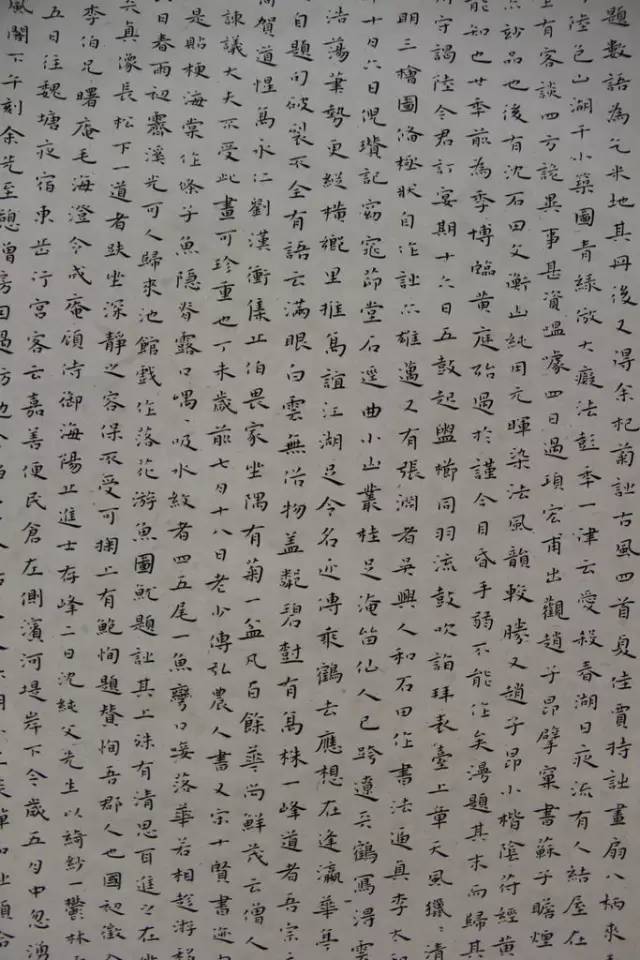 題數語為乞米地其丹後又得余杞菊詠古風四首貞佳賈時詠畫扇八柄來
陸包山湖千小築圖青綠倣大癡法彭年一律云愛殺春湖日夜流有人結屋在
上有客談四方詭異事甚資嗢噱四日過項宏甫出觀趙子昂擘窠書蘇子瞻煙
妙品也後有沈石田文衡山純用元暉染法風韻較勝又趙子昂小楷陰符經黃
能知也廿年前為季博臨黃庭殆過於謹今目昏手弱不能作矣漫題其末而歸其
守謁陸令君訂宴期十六日五鼓起盥櫛同羽流鼓吹詣拜表臺上章天風獵獵清
明三檜圖備極狀自作詠六雄邁又有張淵者吳興人和石田作書法遁真李太
十日六日倪瓚記窈窕茆堂石逕曲小山叢桂足淹留仙人已跨遼天鶴寫得雲
浩蕩筆勢更縱橫鄉里推為誼江湖足令名近傳乘鶴去應想在逢瀛華亭
自題句破裂不全有語云滿眼白雲無俗物蓋粼碧對有萬株一峰道者吾宗
賀道惺為永仁劉漢衝集止伯畏家坐隅有菊一盆凡百餘華尚鮮茂云僧人
諫議大夫不受此畫可珍重也丁未歲前七月十八日老少傅弘農人書又宗十賢書迹
是貼梗海棠作條子魚隱脊露口喁喁吸水紋者四五尾一魚彎口接落華若相趁游
日春雨初霽溪光可人歸來池館戲作落花游魚圖就題詠其上殊有清思百進之在坐
真像長松下一道者趺坐深靜之容保不受可掬上有鮑恂題贊恂吾郡人也國初徵入
李伯兄曙庵毛海澄令戍庵領侍御海陽止進士存峰二日沈純父先生以綺紗一鬱林
五日往魏塘夜宿東岳行宮客云嘉善便民倉左側濱河堤岸下今歲五月中忽湧
風閣下午刻余先至憩僧房